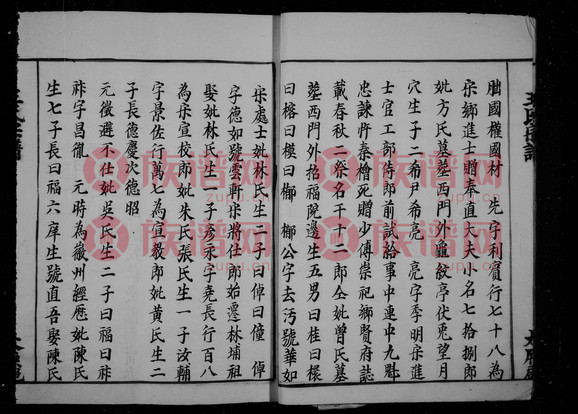 朏國權國材 先字利賓行七十八為
宋鄉進士贈奉直大夫小名七拾捌郎
妣方氏墓塟西門外龜紋亭伏兎望月
穴生子二希尹希亮 亮字季明宋進
士官工部侍郎前試給事中連中九魁
忠諫忤秦檜死贈少傅崇祀鄉賢府誌
載春秋二祭名于十二郎仝妣曾氏墓
塟西門外招福院邊生五男曰桂曰櫋
曰榕曰樸曰 公字去汚號華如
宋處士妣林氏生二子曰倬曰僮 倬
字德如號雲軒宋將仕郎始遷林埔祖
娶妣林氏生二子彦永字堯長行百八
為宋宣校郎妣朱氏張氏生一子汝輔
字景佐行萬七為宣毅郎妣黃氏生二
子長德慶次德昭
元徵避不仕妣吳氏生二子曰福曰祥
祥字昌徹 元時為徽州經歷妣陳氏
生七子長曰福六庠生號直吾娶陳氏
族譜网
zupu.cn